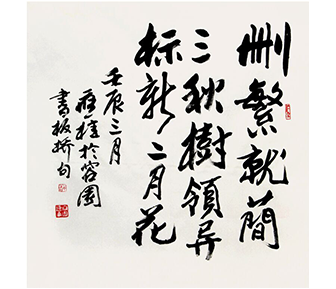 删繁就簡
三秋樹領异
标新二月花
壬辰三月
於容園
書板桥句